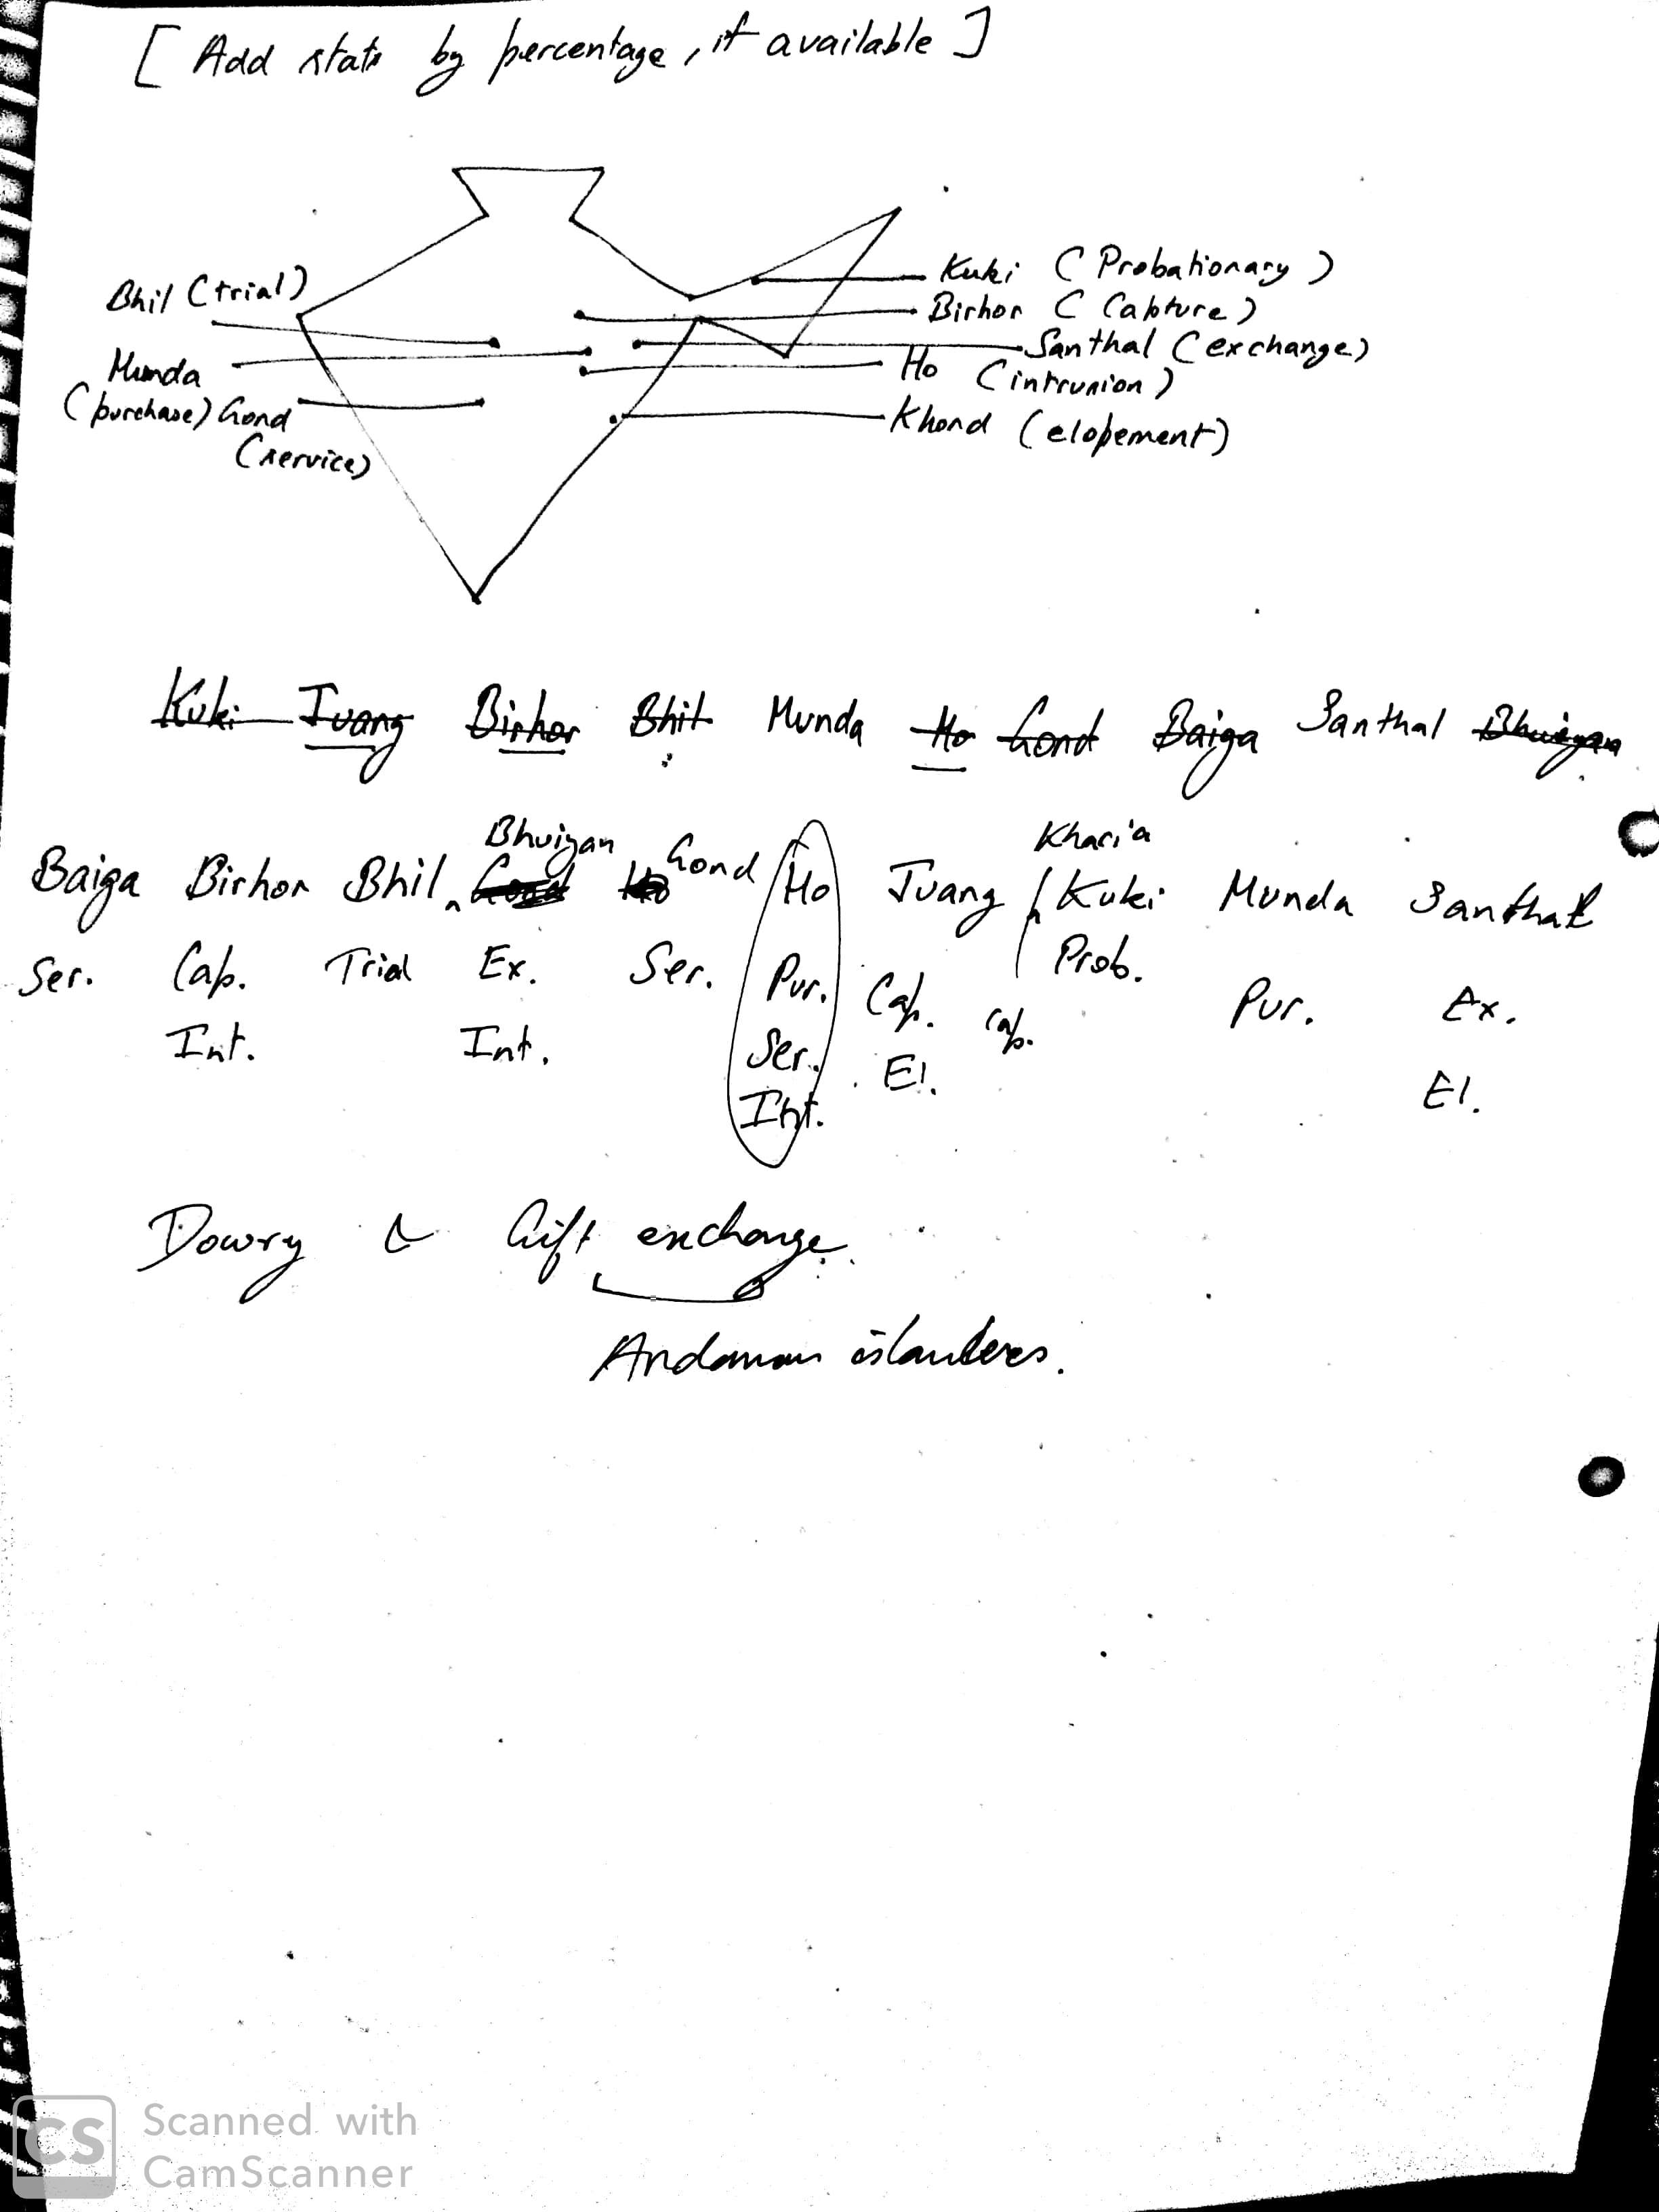 [ Add stats by percentage, if available ]
Bhil (trial)
Munda
(purchase) Gond
(service)
Kuki (Probationary)
Birhor (Capture)
Santhal (exchange)
Ho (intrusion)
Khond (elopement)
Kuki Juang Birhor Bhil Munda Ho Gond Baiga Santhal Bhuiyan
Bhuiyan Kharia
Baiga Birhor Bhil Gond Ho Gond Ho Juang Kuki Munda Santhal
Ser. Cap. Trial Ex. Ser. Pur. Cap. Cap. Prob. Pur. Ex.
Int. Int. Ser. El. El.
Int.
Dowry & Gift exchange
Andaman islanders.
CS Scanned with
CamScanner